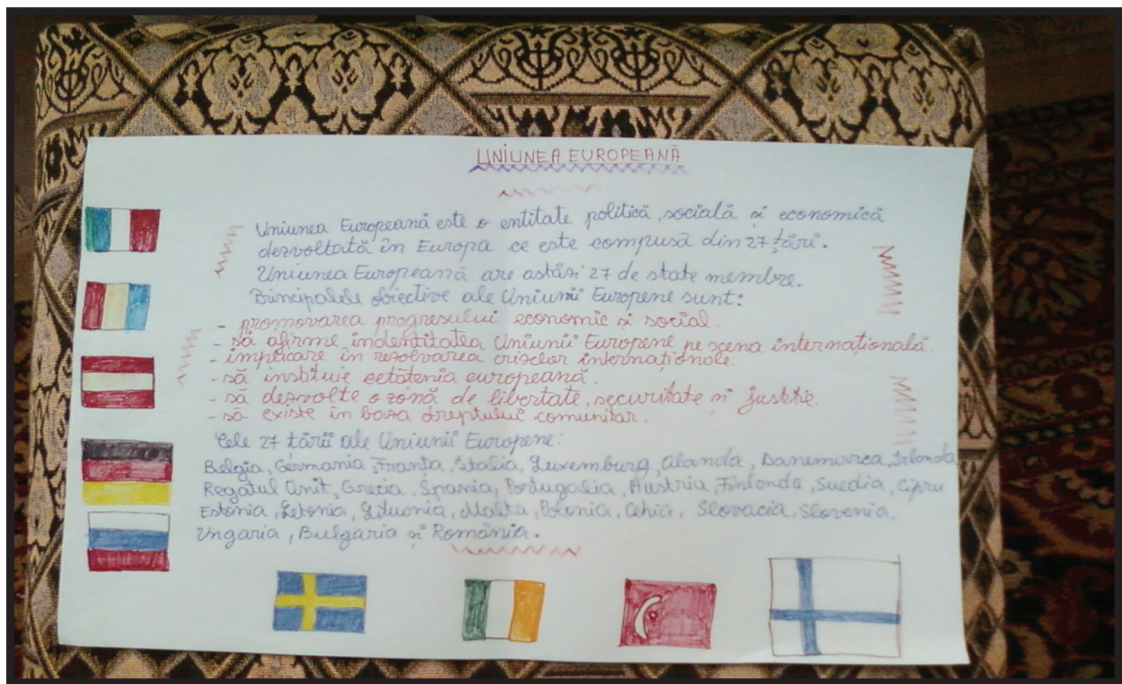 UNIUNEA EUROPEANĂ
Uniunea Europeană este o entitate politică, socială și economică
dezvoltată în Europa ce este compusă din 27 țări.
Uniunea Europeană are astăzi 27 de state membre.
Principalele obiective ale Uniunii Europene sunt:
- promovarea progresului economic și social.
- să afirme indentitatea Uniunii Europene pe scena internațională.
- implicare în rezolvarea crizelor internaționale.
- să instituie cetățenia europeană.
- să dezvolte o zonă de libertate, securitate și justiție.
- să existe în baza dreptului comunitar.
Cele 27 țării ale Uniunii Europene:
Belgia, Germania, Franța, Italia, Luxemburg, Olanda, Danemarca, Irlanda
Regatul Unit, Grecia, Spania, Portugalia, Austria, Finlanda, Suedia, Cipru
Estonia, Letonia, Lituania, Malta, Polonia, Cehia, Slovacia, Slovenia,
Ungaria, Bulgaria și România.